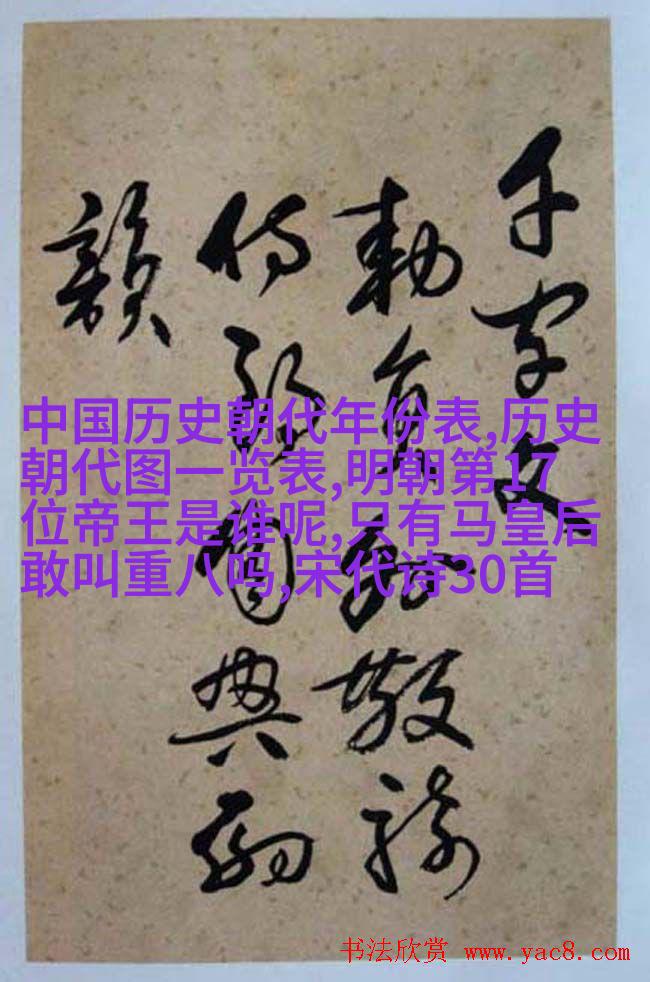 千字文
勅員外散騎
侍郎周興嗣
韻
中国历史朝代年份表,历史
朝代图一览表,明朝第17
位帝王是谁呢,只有马皇后
敢叫重八吗,宋代诗30首
书法欣赏 www.yac8.com